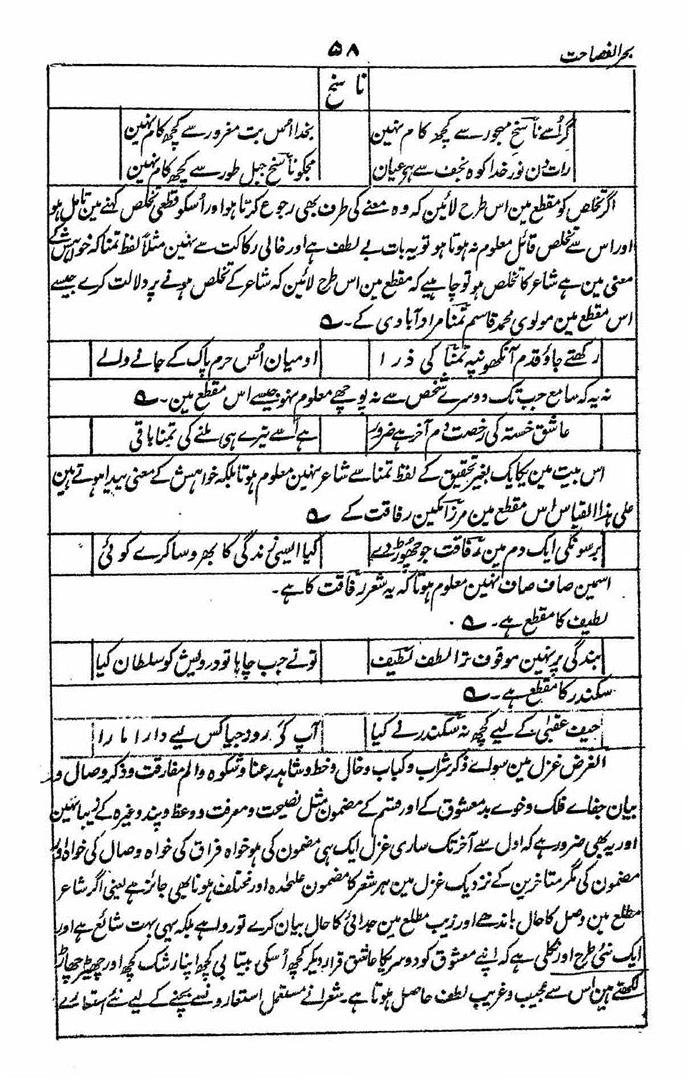 بحر الفصاحت
۵۸
ناسخ
گر اُسے ناسخ مہجور سے کچھ کام نہین بخدا اُس بت مغرور سے کچھ کام نہین
رات دن نور خدا کوہ نجف سے ہے عیان مجکو ناسخ جبل طور سے کچھ کام نہین
اگر تخلص کو مقطع مین اس طرح لائین کہ وہ معنے کی طرف بھی رجوع کرتا ہو اور اُسکو قطعی تخلص کہنے مین تامل ہو
اور اس سے تخلص قائل معلوم نہ ہوتا ہو تو یہ بات بے لطف ہے اور خالی رکاکت سے نہین مثلاً لفظ تمنا کہ خواہش کے
معنی مین ہے شاعر کا تخلص ہو تو چاہیے کہ مقطع مین اس طرح لائین کہ شاعر کے تخلص ہونے پر دلالت کرے جیسے
اس مقطع مین مولوی محمد قاسم تمنا مراد آبادی کے۔ ؎
رکھتے جاؤ قدم آنکھونپہ تمنا کی ذرا او میان اُس حرم پاک کے جانے والے
نہ یہ کہ سامع جب تک دوسرے شخص سے نہ پوچھے معلوم نہو جیسے اس مقطع مین۔ ؎
عاشق خستہ کی رخصت دم آخر ہے ضرور ہے اُسے تیرے ہی ملنے کی تمنا باقی
اس بیت مین یکایک بغیر تحقیق کے لفظ تمنا سے شاعر نہین معلوم ہوتا بلکہ خواہش کے معنی پیدا ہوتے ہین
علی ہذا القیاس اس مقطع مین مرزا مکین رفاقت کے ؎
برسونکی ایک دم مین رفاقت جو چھوڑ دے کیا ایسی زندگی کا بھروسا کرے کوئی
اسمین صاف صاف نہین معلوم ہوتا کہ یہ شعر رفاقت کا ہے۔
لطیف کا مقطع ہے۔ ؎
بندگی پر نہین موقوف ترا لطف لطیف تونے جب چاہا تو درویش کو سلطان کیا
سکندر کا مقطع ہے۔ ؎
حیف عقبیٰ کے لیے کچھ نہ سکندر نے کیا آپ کی رود جیا کس لیے دارا مارا
الغرض غزل مین سواے ذکر شراب و کباب و خال و خط و شاہد رعنا و شکوہ و الم مفارقت و ذکر وصال و
بیان جفاے فلک و خوے بد معشوق کے اور قسم کے مضمون مثل نصیحت و معرفت و وعظ و پند وغیرہ کے زیبا نہین
اور یہ بھی ضرور ہے کہ اول سے آخر تک ساری غزل ایک ہی مضمون کی ہو خواہ فراق کی خواہ وصال کی خواہ اور
مضمون کی مگر متاخرین کے نزدیک غزل مین ہر شعر کا مضمون علٰحدہ اور مختلف ہونا بھی جائز ہے یعنی اگر شاعر
مطلع مین وصل کا حال باندھے اور زیب مطلع مین جدائی کا حال بیان کرے تو روا ہے بلکہ یہی بہت شائع ہے اور
ایک نئی طرح اور نکلی ہے کہ اپنے معشوق کو دوسرے کا عاشق قرار دیکر کچھ اُسکی بیتابی کچھ اپنا رشک کچھ اور چھیڑ چھاڑ
لکھتے ہین اس سے عجیب و غریب لطف حاصل ہوتا ہے۔ شعرا نے مستعمل استعارونسے بچنے کے لیے نئے استعارے